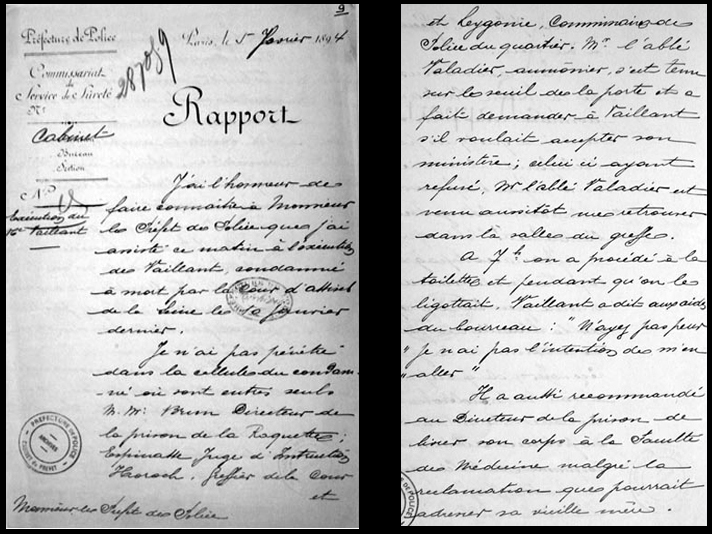 9
Préfecture de Police
Paris, le 5 Janvier 1894
287089
Commissariat
du
Service de Sûreté
N°
Rapport
Cabinet
Bureau
Section
N°
Exécution du
Vaillant
J'ai l'honneur de
faire connaître à Monsieur
le Préfet de Police que j'ai
assisté ce matin à l'exécution
de Vaillant, condamné
à mort par la Cour d'assises
de la Seine le 10 Janvier
dernier.
Je n'ai pas pénétré
dans la cellule du condam-
né où sont entrés seuls
M. M. Brun Directeur de
la prison de la Roquette;
Espinasse Juge d'Instruction
Horoch, greffier de la Cour
et
Monsieur le Préfet de Police
PREFECTURE DE POLICE
ARCHIVES
CABINET DU PREFET
et Leygonie, Commissaire de
Police du quartier. Mr l'abbé
Valadier, aumônier, s'est tenu
sur le seuil de la porte et a
fait demander à Vaillant
s'il voulait accepter son
ministère; celui ci ayant
refusé, Mr l'abbé Valadier est
venu aussitôt me retrouver
dans la salle du greffe.
A 7h on a procédé à la
toilette et pendant qu'on le
ligottait, Vaillant a dit aux aides
du bourreau : "N'ayez pas peur
" je n'ai pas l'intention de m'en
" aller "
Il a aussi recommandé
au Directeur de la prison de
livrer son corps à la Faculté
de Médecine malgré la
réclamation que pourrait
adresser sa vieille mère.